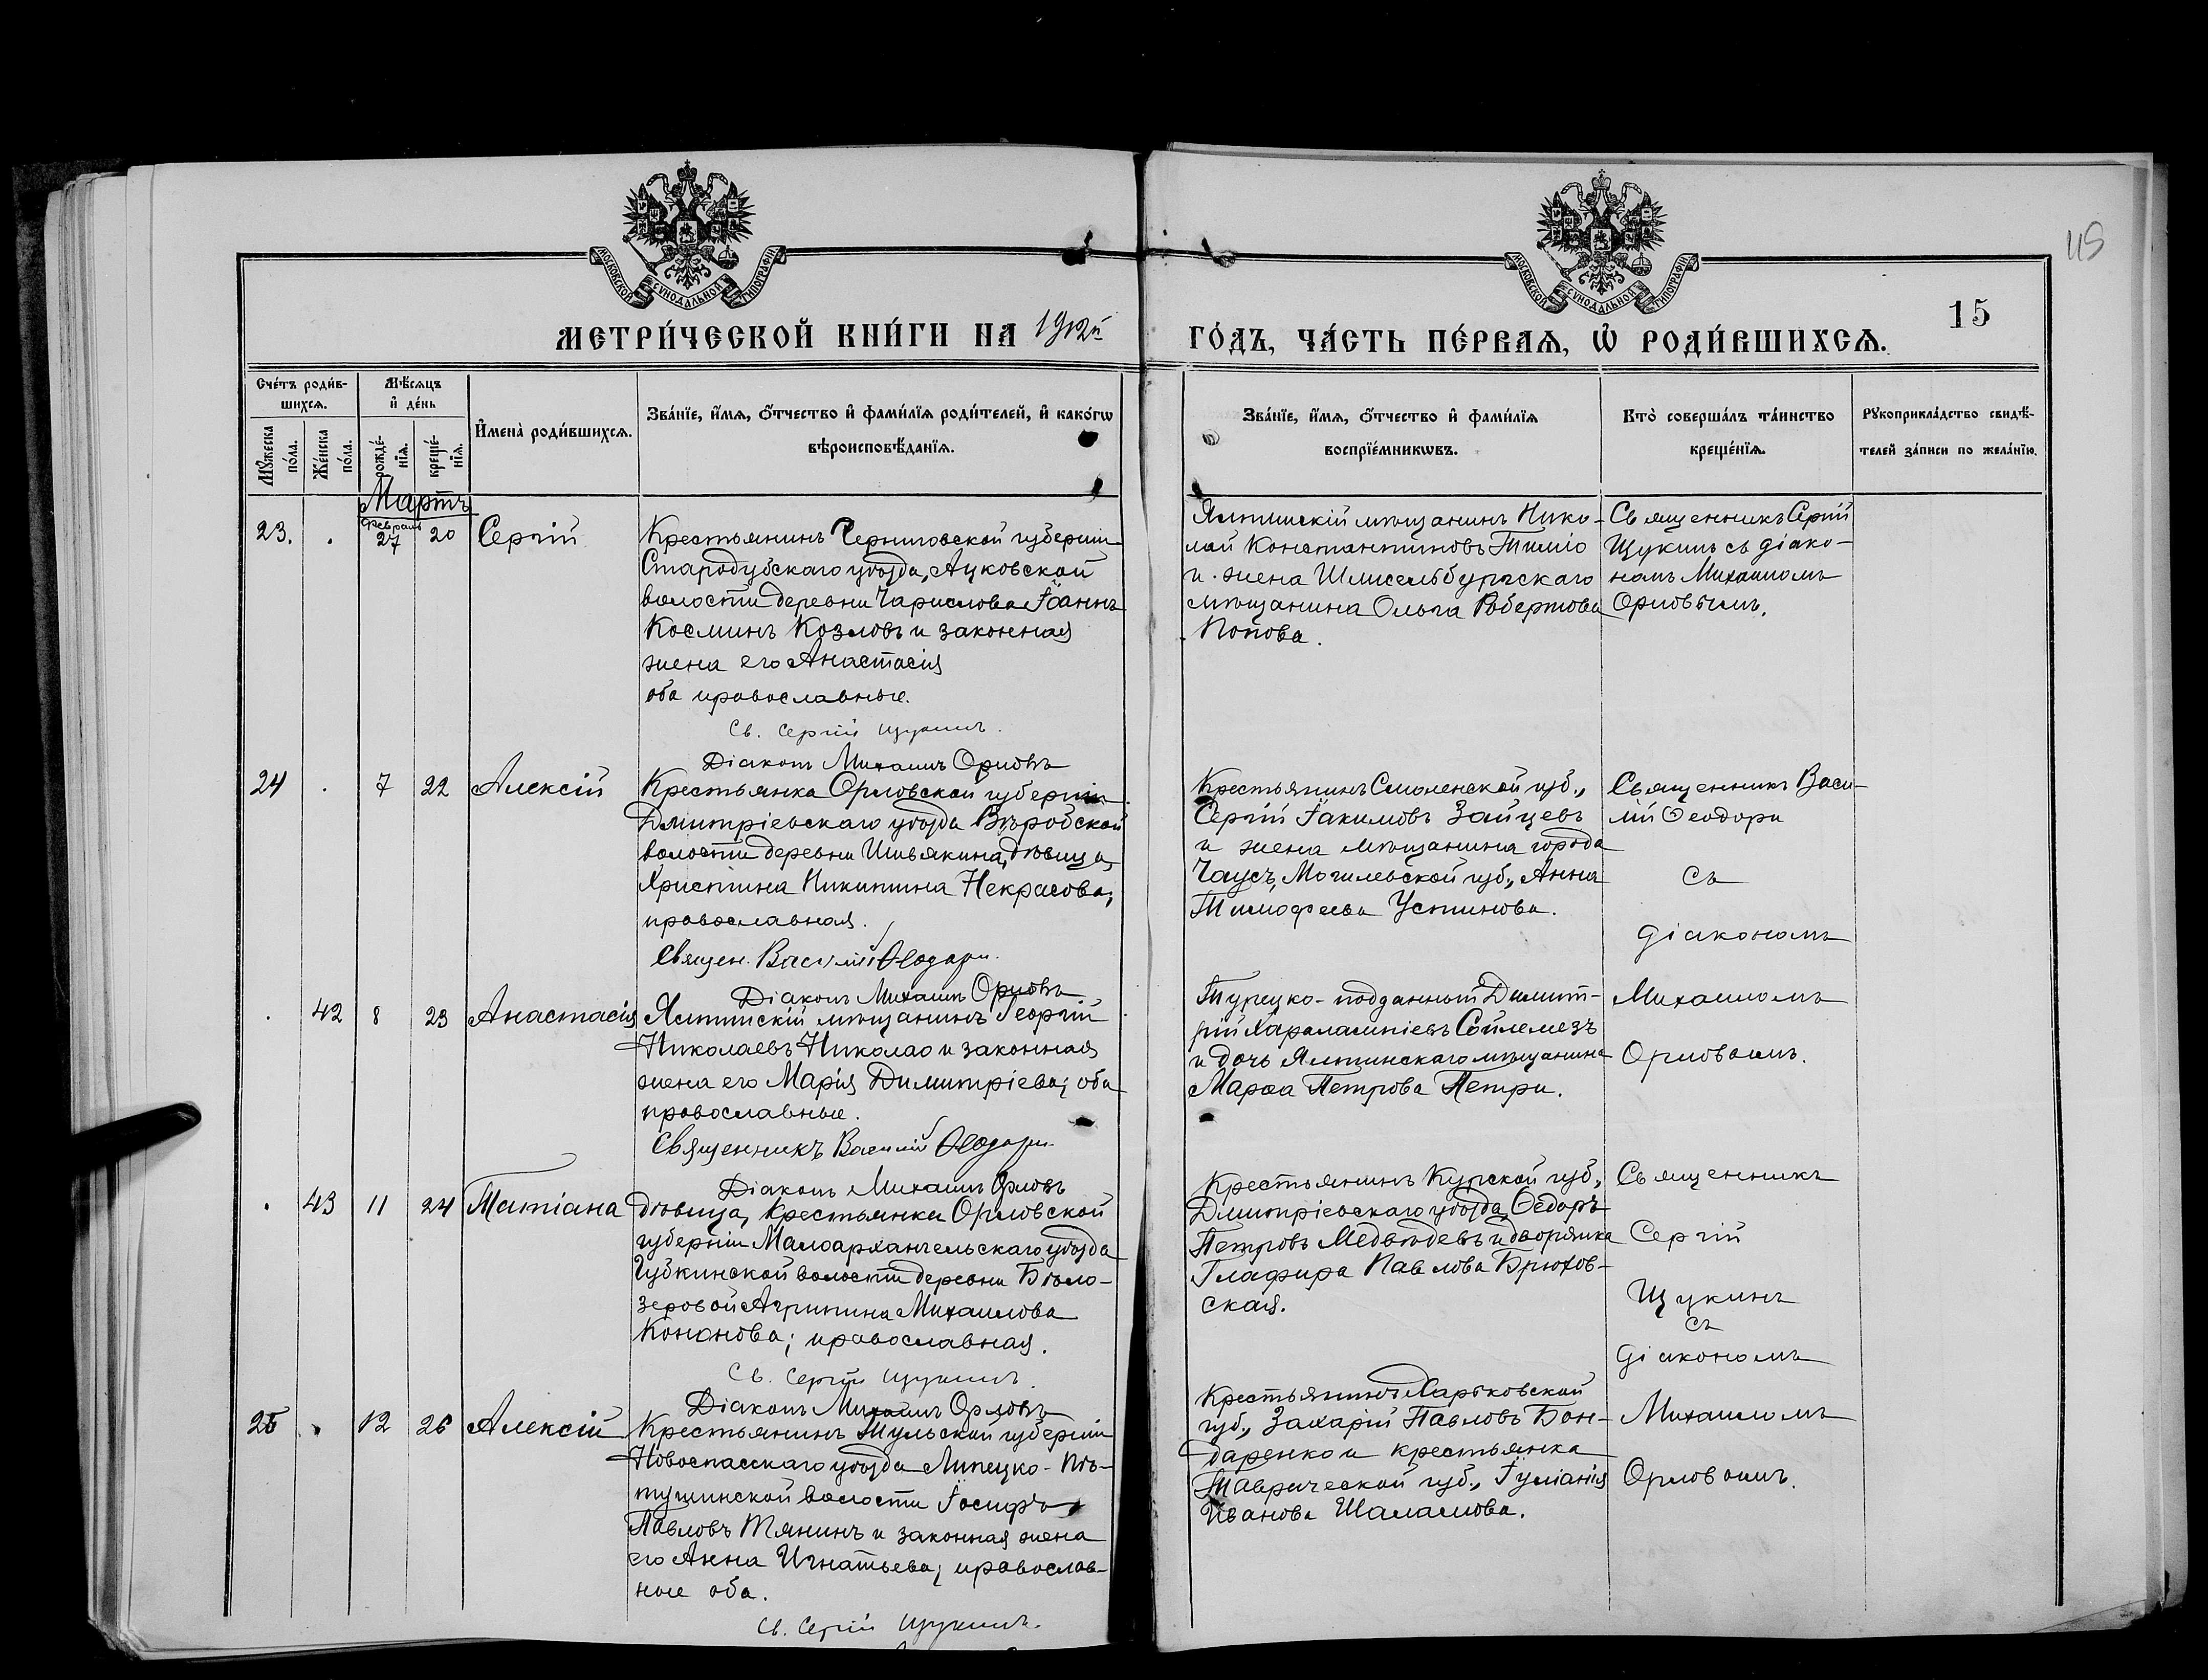 МОСКОВСКОЙ СѴНОДАЛЬНОЙ ТИПОГРАФІИ
МОСКОВСКОЙ СѴНОДАЛЬНОЙ ТИПОГРАФІИ
115
15
МЕТРИ́ЧЕСКОЙ КНИ́ГИ НА 1912й ГО́ДЪ, ЧА́СТЬ ПЕ́РВАѦ, Ѡ҆ РОДИ́ВШИХСѦ.
Сче́тъ роди́в-
шихсѧ.
Мꙋ́жеска
по́ла.
Же́нска
по́ла.
Мѣ́сѧцъ
и҆ де́нь
рожде́-
нїѧ.
креще́-
нїѧ.
И҆мена̀ роди́вшихсѧ.
Зва́нїе, и҆́мѧ, ѻ҆́тчество и҆ фами́лїѧ роди́телей, и҆ како́гѡ
вѣроисповѣ́данїѧ.
Зва́нїе, и҆́мѧ, ѻ҆́тчество и҆ фами́лїѧ
воспрїе́мникѡвъ.
Кто̀ соверша́лъ та́инство
креще́нїѧ.
Рꙋкоприкла́дство свидѣ́-
телей за́писи по жела́нїю.
Мартъ
23. . Февраль 27 20 Сергій
Крестьянинъ Черниговской губерніи
Стародубскаго уѣзда, Луковской
волости деревни Чарислова Іоаннъ
Космин Козловъ и законная
жена его Анастасія
оба православные.
Св. Сергій Щукинъ.
Діаконъ Михаилъ Орловъ
Ялтинскій мѣщанинъ Нико-
лай Константиновъ Тиміо
и жена Шлисельбургскаго
мѣщанина Ольга Робертова
Попова.
Священникъ Сергій
Щукинъ съ діако-
номъ Михаиломъ
Орловымъ.
24 . 7 22 Алексій
Крестьянка Орловской губерніи
Дмитріевскаго уѣзда Вѣробской
волости деревни Шивякина, дѣвица,
Христина Никитина Некрасова;
православная.
Священ. Василій Ѳеодори.
Діаконъ Михаилъ Орловъ
Крестьянинъ Смоленской губ.,
Сергій Іакимовъ Зайцевъ
и жена мѣщанина города
Чаусъ, Могилевской губ., Анна
Тимофеева Устинова.
Священникъ Васи-
лій Ѳеодори
съ
діакономъ
Михаиломъ
Орловымъ.
. 42 8 23 Анастасія
Ялтинскій мѣщанинъ Георгій
Николаевъ Николао и законная
жена его Марія Димитріева; оба
православные.
Священникъ Василій Ѳеодори
Діаконъ Михаилъ Орловъ
Турецко-подданный Димит-
рій Харалампіевъ Сойлемезъ
и дочь Ялтинскаго мѣщанина
Марѳа Петрова Петри.
. 43 11 24 Татіана
Дѣвица, крестьянка Орловской
губерніи Малоархангельскаго уѣзда
Губкинской волости деревни Бѣло-
зеровой Агрипина Михаилова
Кононова; православная.
Св. Сергій Щукинъ.
Діаконъ Михаилъ Орловъ
Крестьянинъ Курской губ.,
Дмитріевскаго уѣзда, Ѳедоръ
Петровъ Медвѣдевъ и дворянка
Глафира Павлова Брюхов-
ская.
Священникъ
Сергій
Щукинъ
съ
діакономъ
Михаиломъ
Орловымъ.
25 . 12 26 Алексій
Крестьянинъ Тульской губерніи
Новоспасскаго уѣзда Липецко-Пѣ-
тушинской волости Іосифъ
Павловъ Тянинъ и законная жена
его Анна Игнатьева; православ-
ные оба.
Св. Сергій Щукинъ.
Крестьянинъ Харьковской
губ., Захарій Павловъ Бон-
даренко и крестьянка
Таврической губ., Іуліанія
Иванова Шаламова.